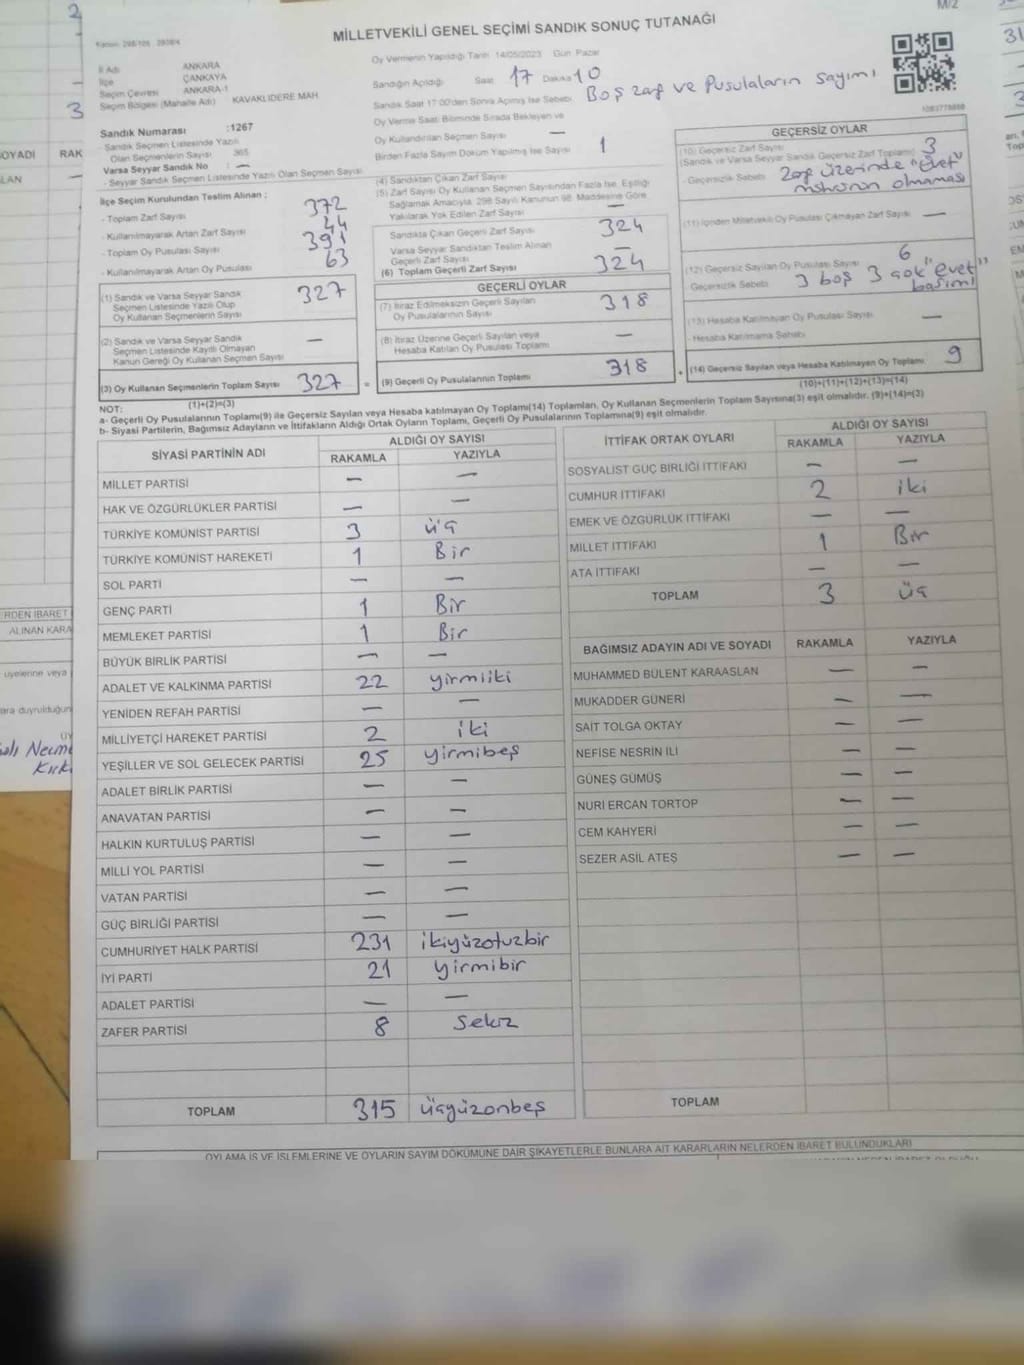 MİLLETVEKİLİ GENEL SEÇİMİ SANDIK SONUÇ TUTANAĞI
İl Adı ANKARA
İlçe ÇANKAYA
Seçim Çevresi ANKARA-1
Seçim Bölgesi (Mahalle Adı) KAVAKLIDERE MAH.
Oy Vermenin Yapıldığı Tarih 14/05/2023 Gün Pazar
Sandığın Açıldığı Saat 17 Dakika 10
Sandık Saat 17:00'den Sonra Açılmış İse Sebebi Boş zarf ve Pusulaların sayımı
Oy Verme Saati Bitiminde Sırada Bekleyen ve
Oy Kullandırılan Seçmen Sayısı —
Birden Fazla Sayım Döküm Yapılmış İse Sayısı 1
Sandık Numarası :1267
- Sandık Seçmen Listesinde Yazılı
Olan Seçmenlerin Sayısı 365
Varsa Seyyar Sandık No —
- Seyyar Sandık Seçmen Listesinde Yazılı Olan Seçmen Sayısı
İlçe Seçim Kurulundan Teslim Alınan ;
- Toplam Zarf Sayısı 372
- Kullanılmayarak Artan Zarf Sayısı 44
- Toplam Oy Pusulası Sayısı 391
- Kullanılmayarak Artan Oy Pusulası 63
(1) Sandık ve Varsa Seyyar Sandık
Seçmen Listesinde Yazılı Olup
Oy Kullanan Seçmenlerin Sayısı 327
(2) Sandık ve Varsa Seyyar Sandık
Seçmen Listesinde Kayıtlı Olmayan
Kanun Gereği Oy Kullanan Seçmen Sayısı —
(3) Oy Kullanan Seçmenlerin Toplam Sayısı 327
(1)+(2)=(3)
(4) Sandıktan Çıkan Zarf Sayısı
(5) Zarf Sayısı Oy Kullanan Seçmen Sayısından Fazla İse, Eşitliği
Sağlamak Amacıyla, 298 Sayılı Kanunun 98. Maddesine Göre
Yakılarak Yok Edilen Zarf Sayısı —
Sandıkta Çıkan Geçerli Zarf Sayısı 324
Varsa Seyyar Sandıktan Teslim Alınan
Geçerli Zarf Sayısı —
(6) Toplam Geçerli Zarf Sayısı 324
GEÇERLİ OYLAR
(7) İtiraz Edilmeksizin Geçerli Sayılan
Oy Pusulalarının Sayısı 318
(8) İtiraz Üzerine Geçerli Sayılan veya
Hesaba Katılan Oy Pusulası Toplamı —
= (9) Geçerli Oy Pusulalarının Toplamı 318
GEÇERSİZ OYLAR
(10) Geçersiz Zarf Sayısı 3
(Sandık ve Varsa Seyyar Sandık Geçersiz Zarf Toplamı)
- Geçersizlik Sebebi Zarf üzerinde "evet"
mührünün olmaması
(11) İçinden Milletvekili Oy Pusulası Çıkmayan Zarf Sayısı —
(12) Geçersiz Sayılan Oy Pusulası Sayısı 6
- Geçersizlik Sebebi 3 boş 3 çok "evet"
basımı
(13) Hesaba Katılmayan Oy Pusulası Sayısı —
- Hesaba Katılmama Sebebi
+ (14) Geçersiz Sayılan veya Hesaba Katılmayan Oy Toplamı 9
(10)+(11)+(12)+(13)=(14)
NOT:
a- Geçerli Oy Pusulalarının Toplamı(9) ile Geçersiz Sayılan veya Hesaba katılmayan Oy Toplamı(14) Toplamları, Oy Kullanan Seçmenlerin Toplam Sayısına(3) eşit olmalıdır. (9)+(14)=(3)
b- Siyasi Partilerin, Bağımsız Adayların ve İttifakların Aldığı Ortak Oyların Toplamı, Geçerli Oy Pusulalarının Toplamına(9) eşit olmalıdır.
SİYASİ PARTİNİN ADI ALDIĞI OY SAYISI
RAKAMLA YAZIYLA
MİLLET PARTİSİ — —
HAK VE ÖZGÜRLÜKLER PARTİSİ — —
TÜRKİYE KOMÜNİST PARTİSİ 3 üç
TÜRKİYE KOMÜNİST HAREKETİ 1 Bir
SOL PARTİ — —
GENÇ PARTİ 1 Bir
MEMLEKET PARTİSİ 1 Bir
BÜYÜK BİRLİK PARTİSİ — —
ADALET VE KALKINMA PARTİSİ 22 yirmiiki
YENİDEN REFAH PARTİSİ — —
MİLLİYETÇİ HAREKET PARTİSİ 2 iki
YEŞİLLER VE SOL GELECEK PARTİSİ 25 yirmibeş
ADALET BİRLİK PARTİSİ — —
ANAVATAN PARTİSİ — —
HALKIN KURTULUŞ PARTİSİ — —
MİLLİ YOL PARTİSİ — —
VATAN PARTİSİ — —
GÜÇ BİRLİĞİ PARTİSİ — —
CUMHURİYET HALK PARTİSİ 231 ikiyüzotuzbir
İYİ PARTİ 21 yirmibir
ADALET PARTİSİ — —
ZAFER PARTİSİ 8 Sekiz
TOPLAM 315 üçyüzonbeş
İTTİFAK ORTAK OYLARI ALDIĞI OY SAYISI
RAKAMLA YAZIYLA
SOSYALİST GÜÇ BİRLİĞİ İTTİFAKI — —
CUMHUR İTTİFAKI 2 iki
EMEK VE ÖZGÜRLÜK İTTİFAKI — —
MİLLET İTTİFAKI 1 Bir
ATA İTTİFAKI — —
TOPLAM 3 üç
BAĞIMSIZ ADAYIN ADI VE SOYADI RAKAMLA YAZIYLA
MUHAMMED BÜLENT KARAASLAN — —
MUKADDER GÜNERİ — —
SAİT TOLGA OKTAY — —
NEFİSE NESRİN İLİ — —
GÜNEŞ GÜMÜŞ — —
NURİ ERCAN TORTOP — —
CEM KAHYERİ — —
SEZER ASİL ATEŞ — —
TOPLAM
OYLAMA İŞ VE İŞLEMLERİNE VE OYLARIN SAYIM DÖKÜMÜNE DAİR ŞİKAYETLERLE BUNLARA AİT KARARLARIN NELERDEN İBARET BULUNDUKLARI